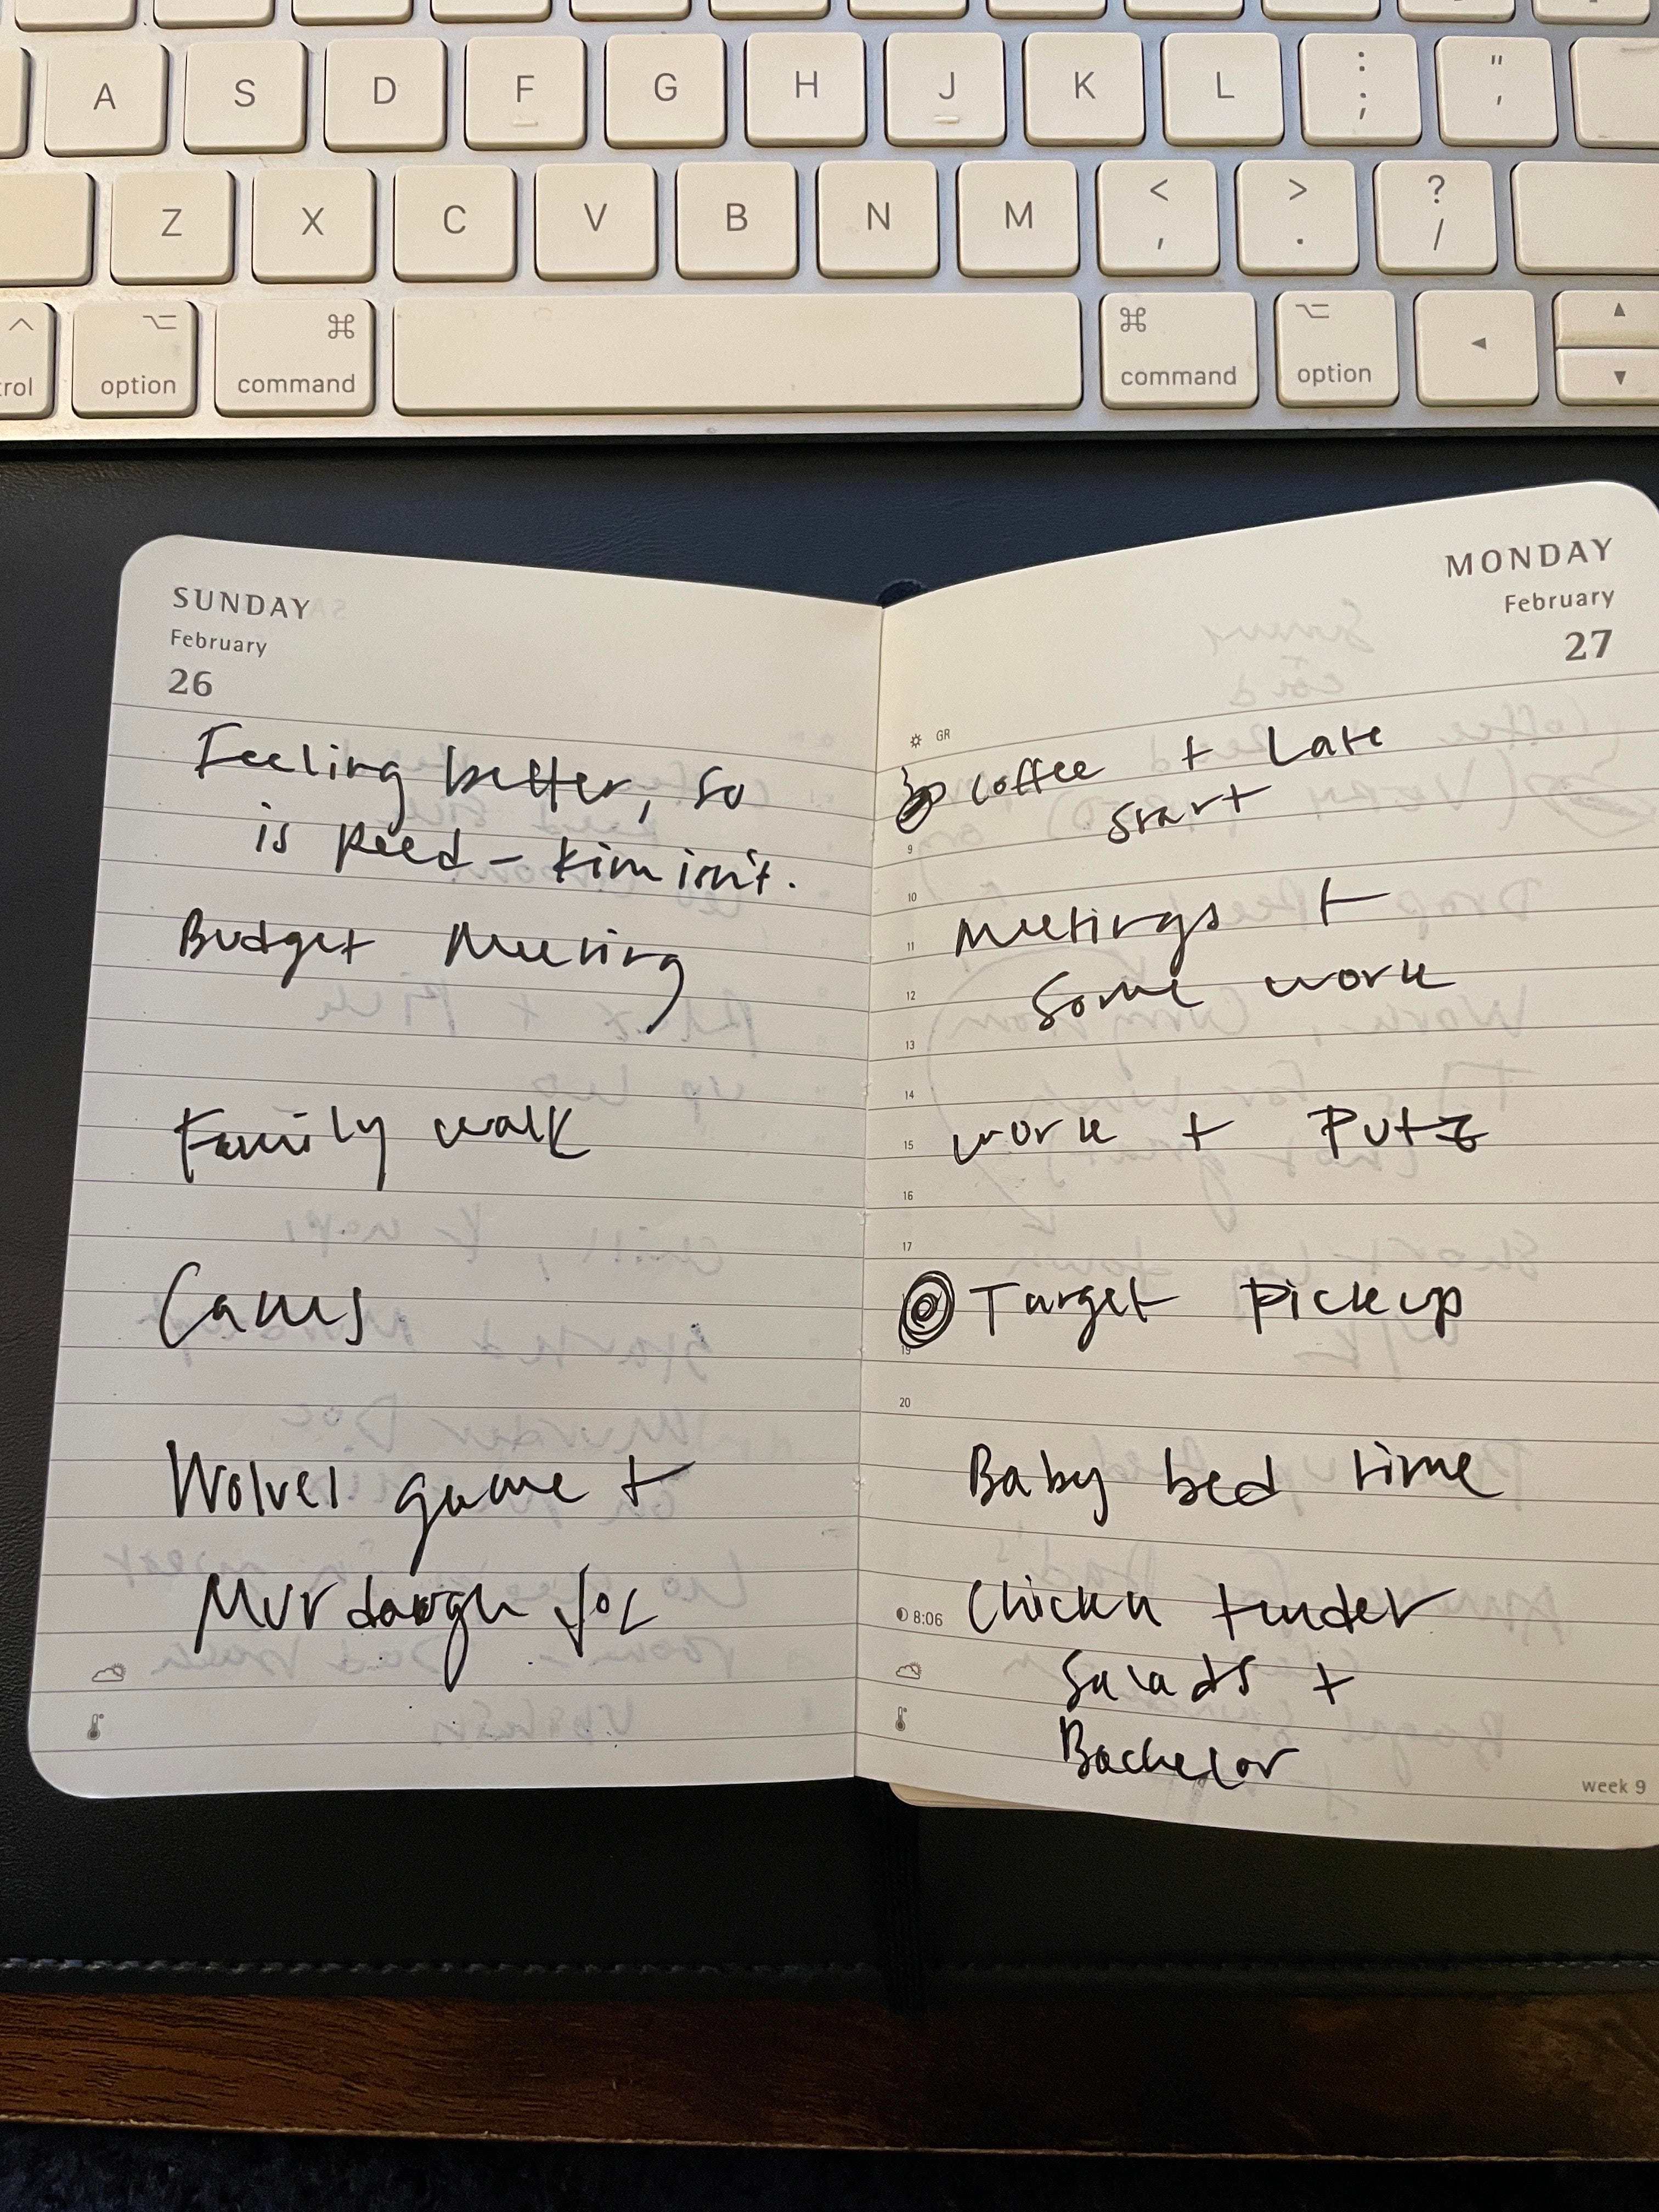 A S D F G H J K L : ; " '
Z X C V B N M < , > . ? /
option command command option
SUNDAY
February
26
Feeling better, so
is Reed - Kim isn't.
Budget Meeting
Family walk
Wolves game +
Murdaugh Doc
MONDAY
February
27
GR
Coffee + Late
Start
9
10
Meetings +
11
Some work
12
13
14
15
work + Putz
16
17
Target Pickup
19
20
Baby bed time
8:06
Chicken tender
Salads +
Bachelor
week 9